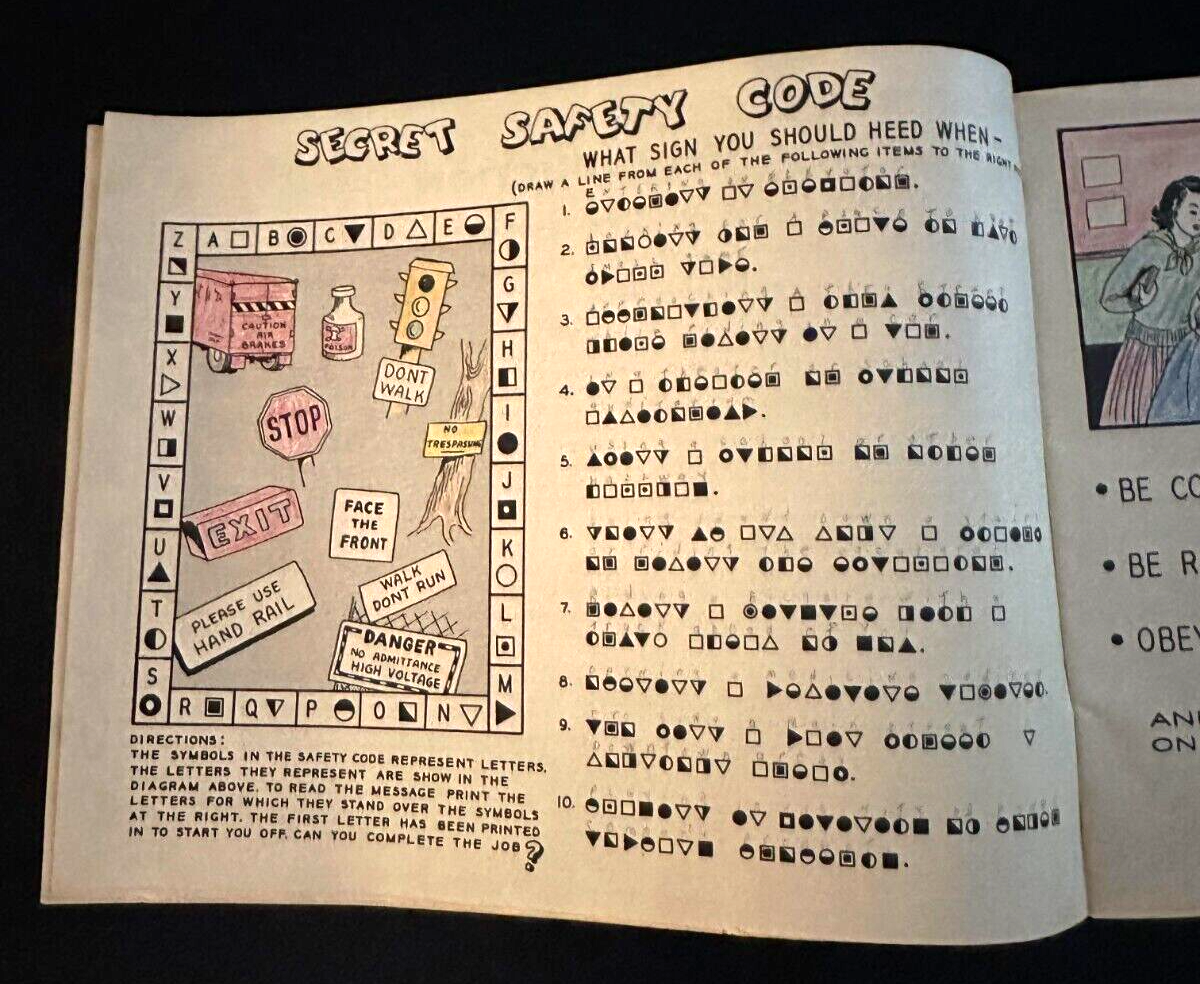 SECRET SAFETY CODE
WHAT SIGN YOU SHOULD HEED WHEN-
(DRAW A LINE FROM EACH OF THE FOLLOWING ITEMS TO THE RIGHT
Z A B C D E F
Y
X
W
V
U
T
S
G
H
I
J
K
L
M
R Q P O N
CAUTION
AIR
BRAKES
POISON
DONT
WALK
STOP
NO
TRESPASSING
EXIT
FACE
THE
FRONT
WALK
DONT RUN
PLEASE USE
HAND RAIL
DANGER
NO ADMITTANCE
HIGH VOLTAGE
DIRECTIONS:
THE SYMBOLS IN THE SAFETY CODE REPRESENT LETTERS.
THE LETTERS THEY REPRESENT ARE SHOW IN THE
DIAGRAM ABOVE. TO READ THE MESSAGE PRINT THE
LETTERS FOR WHICH THEY STAND OVER THE SYMBOLS
AT THE RIGHT. THE FIRST LETTER HAS BEEN PRINTED
IN TO START YOU OFF. CAN YOU COMPLETE THE JOB?
E
1.
2.
3.
4.
5.
6.
7.
8.
9.
10.
• BE CO
• BE R
• OBEY
AN
ON